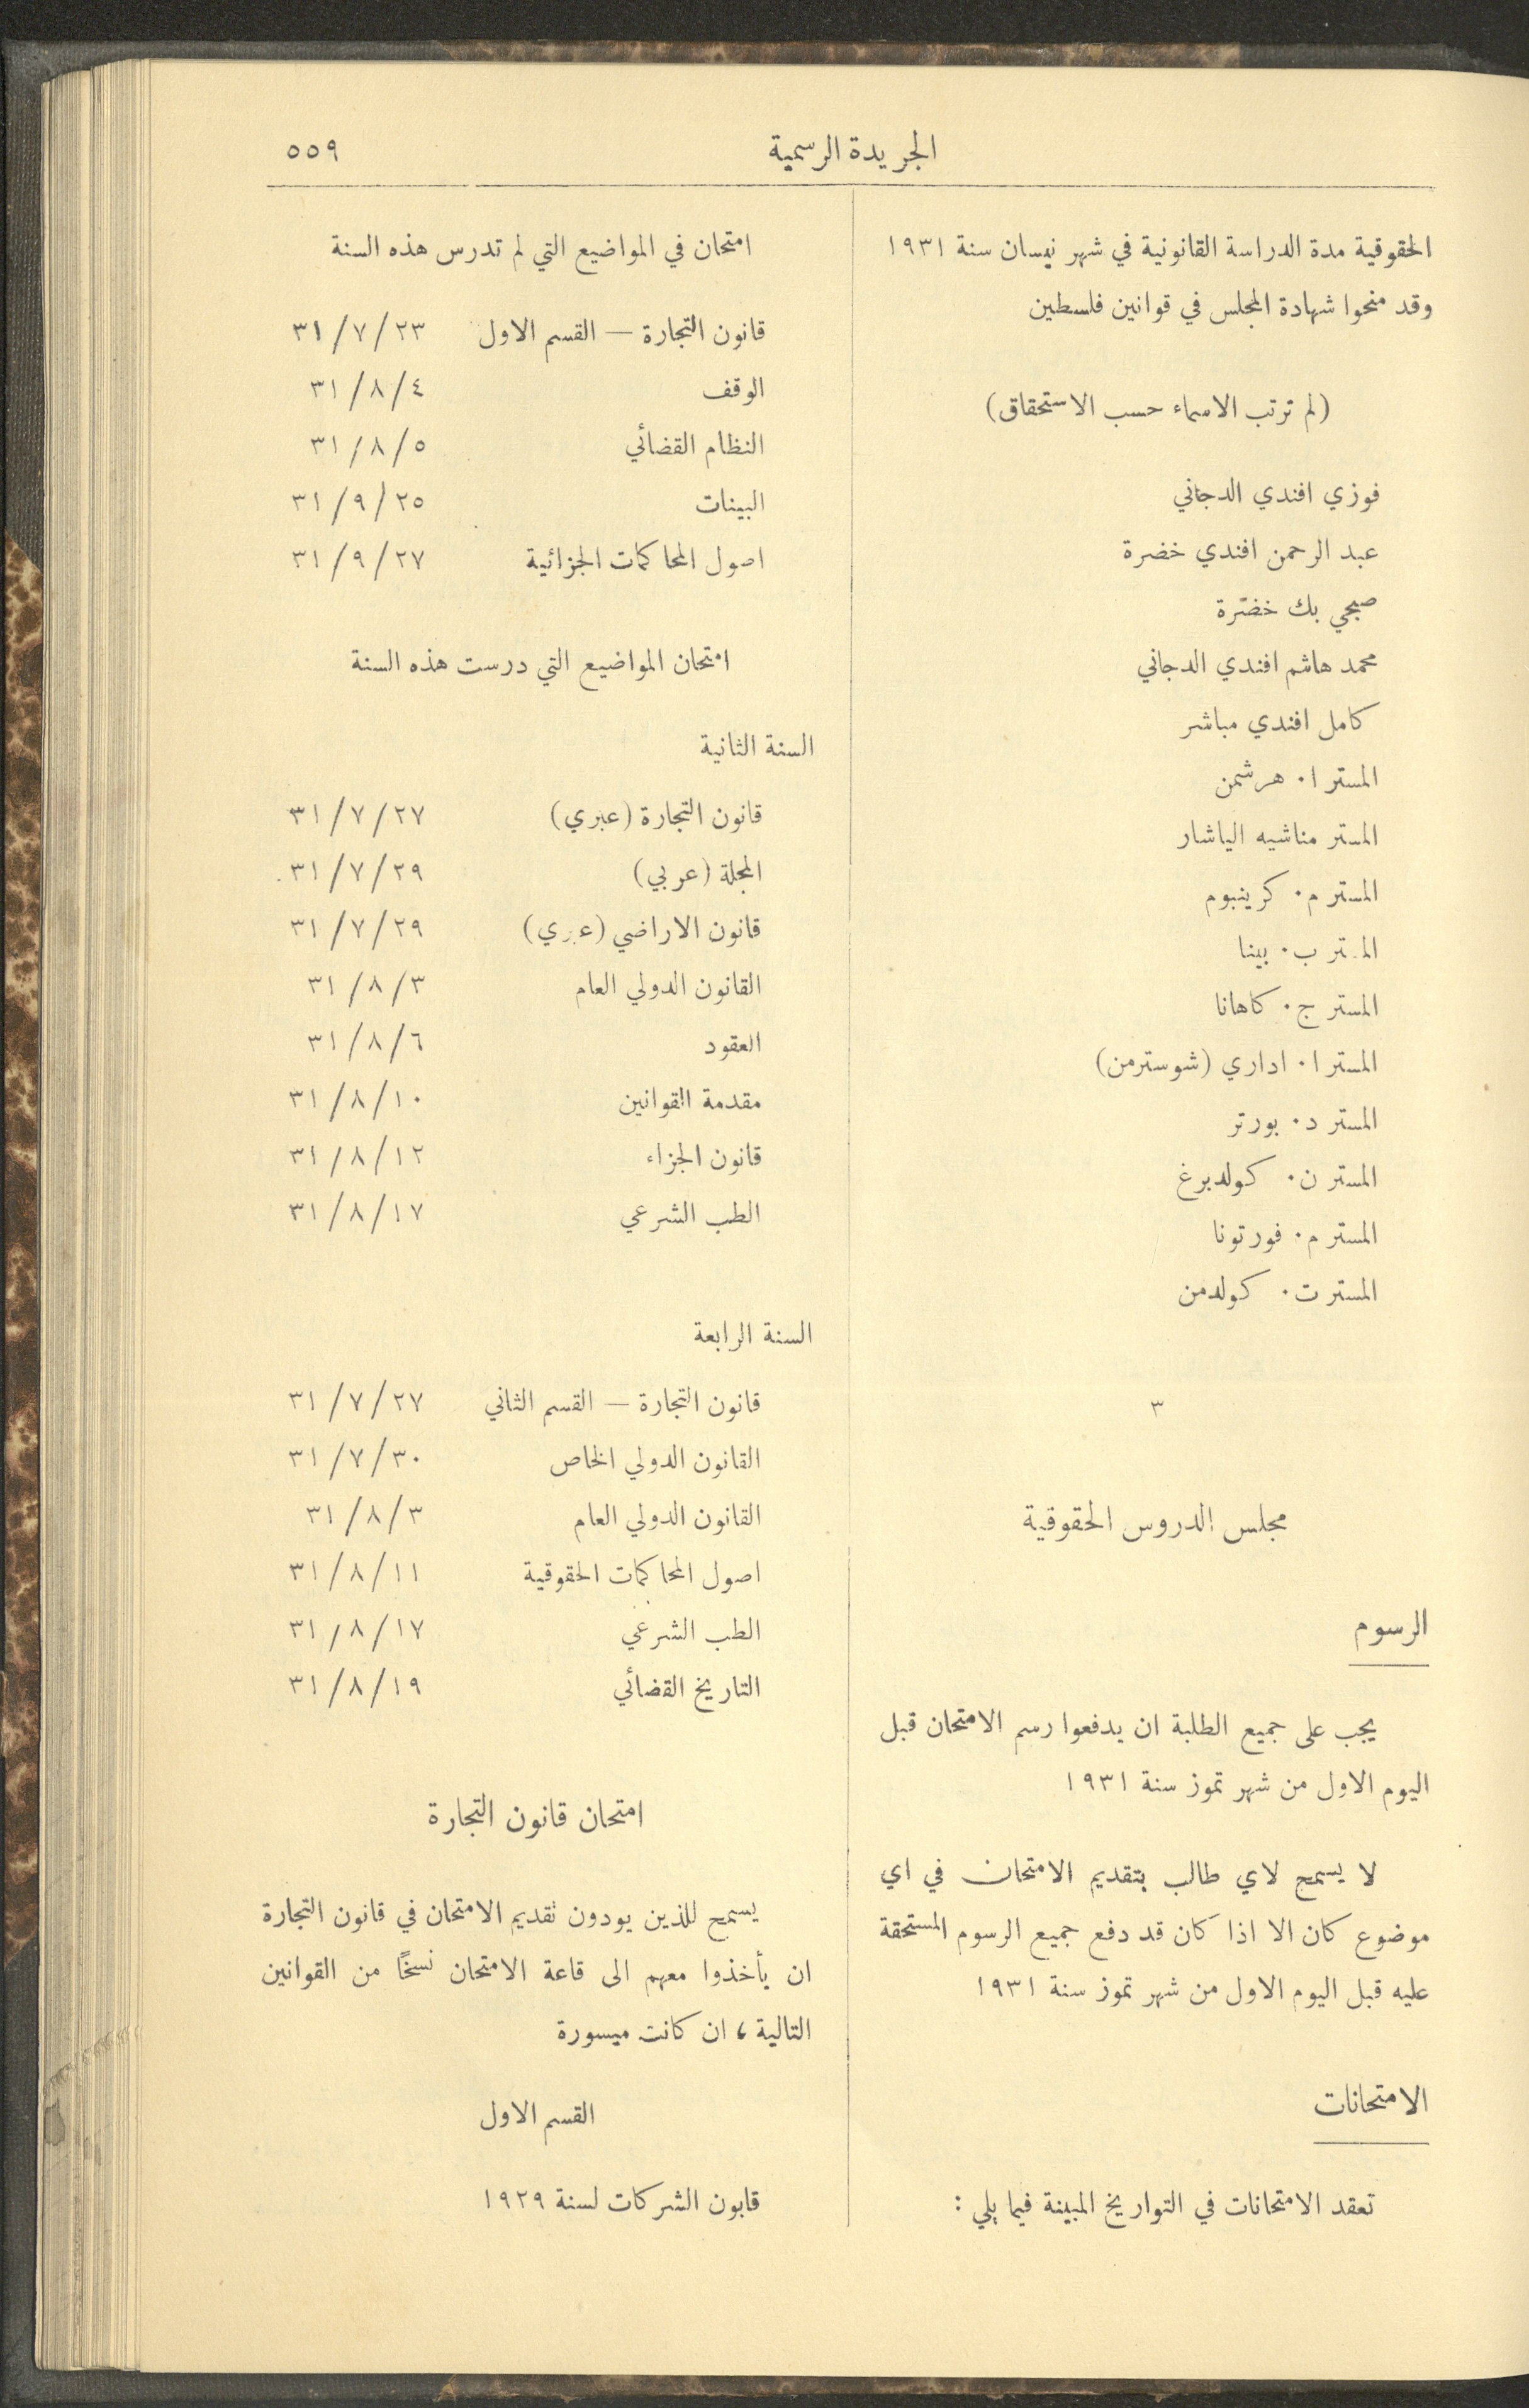 الجريدة الرسمية
٥٥٩
الحقوقية مدة الدراسة القانونية في شهر نيسان سنة ١٩٣١
وقد منحوا شهادة المجلس في قوانين فلسطين
(لم ترتب الاسماء حسب الاستحقاق)
فوزي افندي الدجاني
عبد الرحمن افندي خضرة
صبحي بك خضرة
محمد هاشم افندي الدجاني
كامل افندي مباشر
المستر ا. هرشمن
المستر مناشيه الياشار
المستر م. كرينبوم
المستر ب. بينا
المستر ج. كاهانا
المستر ا. اداري (شوسترمن)
المستر د. بورتر
المستر ن. كولدبرغ
المستر م. فورتونا
المستر ت. كولدمن
٣
مجلس الدروس الحقوقية
الرسوم
يجب على جميع الطلبة ان يدفعوا رسم الامتحان قبل
اليوم الاول من شهر تموز سنة ١٩٣١
لا يسمح لاي طالب بتقديم الامتحان في اي
موضوع كان الا اذا كان قد دفع جميع الرسوم المستحقة
عليه قبل اليوم الاول من شهر تموز سنة ١٩٣١
الامتحانات
تعقد الامتحانات في التواريخ المبينة فيما يلي :
امتحان في المواضيع التي لم تدرس هذه السنة
قانون التجارة — القسم الاول ٣١/٧/٢٣
الوقف ٣١/٨/٤
النظام القضائي ٣١/٨/٥
البينات ٣١/٩/٢٥
اصول المحاكمات الجزائية ٣١/٩/٢٧
امتحان المواضيع التي درست هذه السنة
السنة الثانية
قانون التجارة (عبري) ٣١/٧/٢٧
المجلة (عربي) ٣١/٧/٢٩
قانون الاراضي (عبري) ٣١/٧/٢٩
القانون الدولي العام ٣١/٨/٣
العقود ٣١/٨/٦
مقدمة القوانين ٣١/٨/١٠
قانون الجزاء ٣١/٨/١٢
الطب الشرعي ٣١/٨/١٧
السنة الرابعة
قانون التجارة — القسم الثاني ٣١/٧/٢٧
القانون الدولي الخاص ٣١/٧/٣٠
القانون الدولي العام ٣١/٨/٣
اصول المحاكمات الحقوقية ٣١/٨/١١
الطب الشرعي ٣١/٨/١٧
التاريخ القضائي ٣١/٨/١٩
امتحان قانون التجارة
يسمح للذين يودون تقديم الامتحان في قانون التجارة
ان يأخذوا معهم الى قاعة الامتحان نسخًا من القوانين
التالية ، ان كانت ميسورة
القسم الاول
قابون الشركات لسنة ١٩٢٩